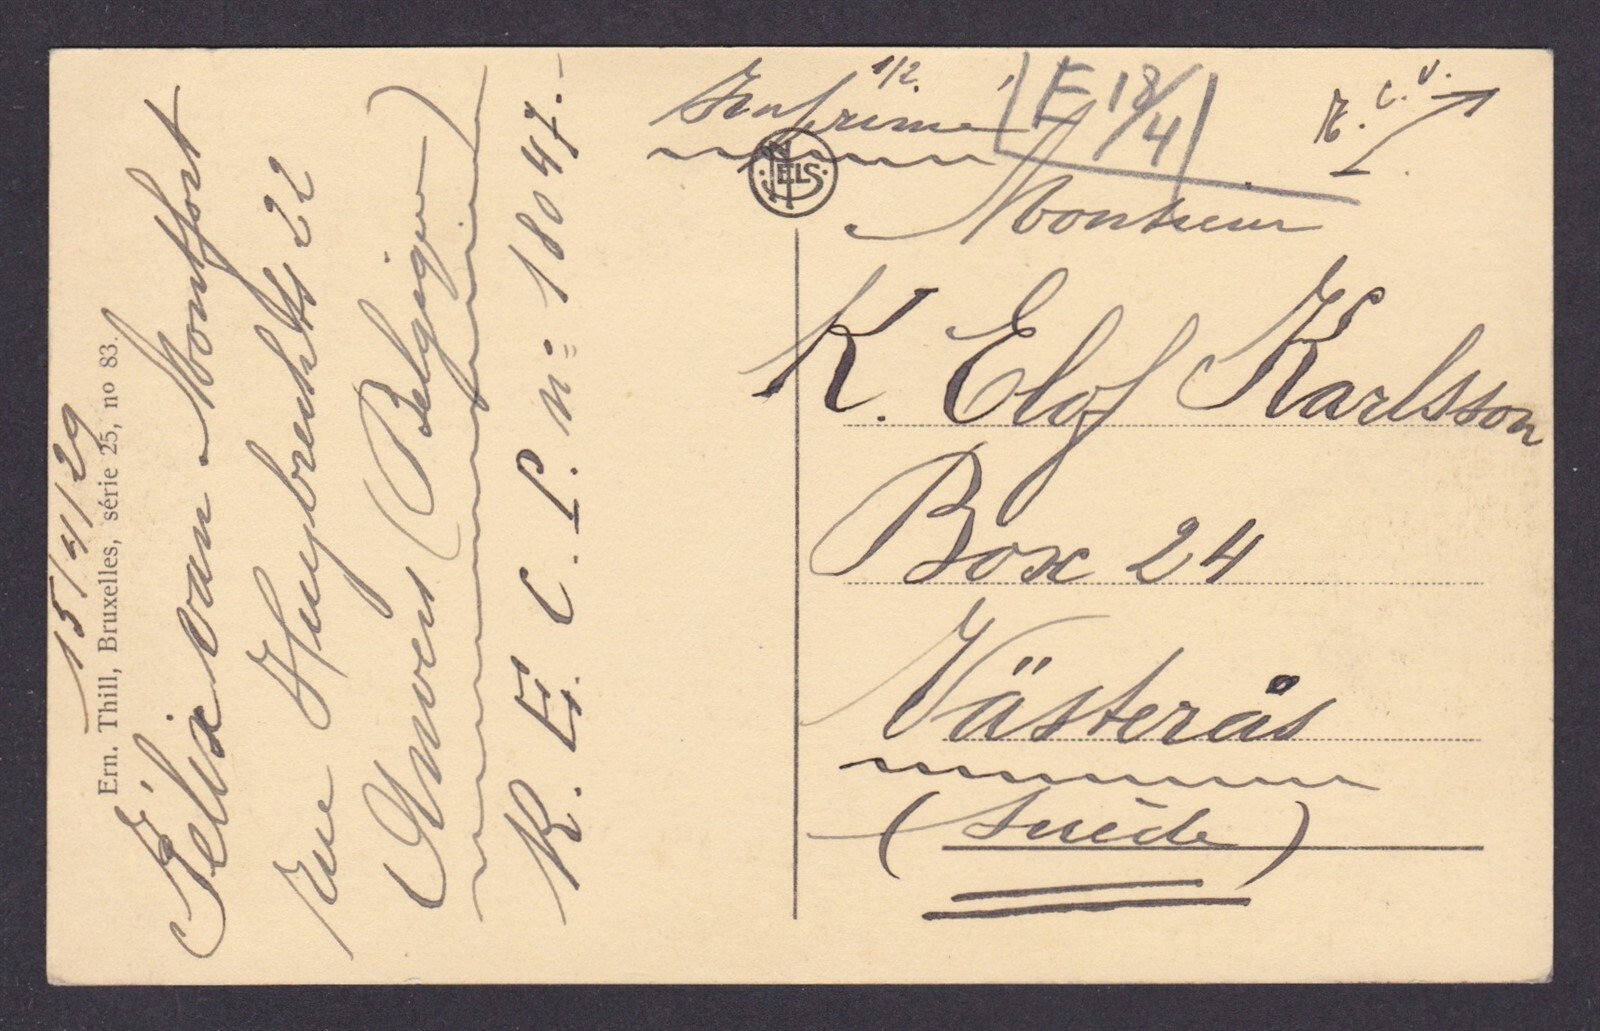 15/4/29
Ern. Thill, Bruxelles, série 25, no 83.
Félix van Montfort
rue Huybrechts 22
Anvers (Belgique)
K. E. C. P. n° 18047.-
1/2.
Imprimé
E 18/4
T. C. V.
NELS
Monsieur
K. Elof Karlsson
Box 24
Västerås
(Suède)